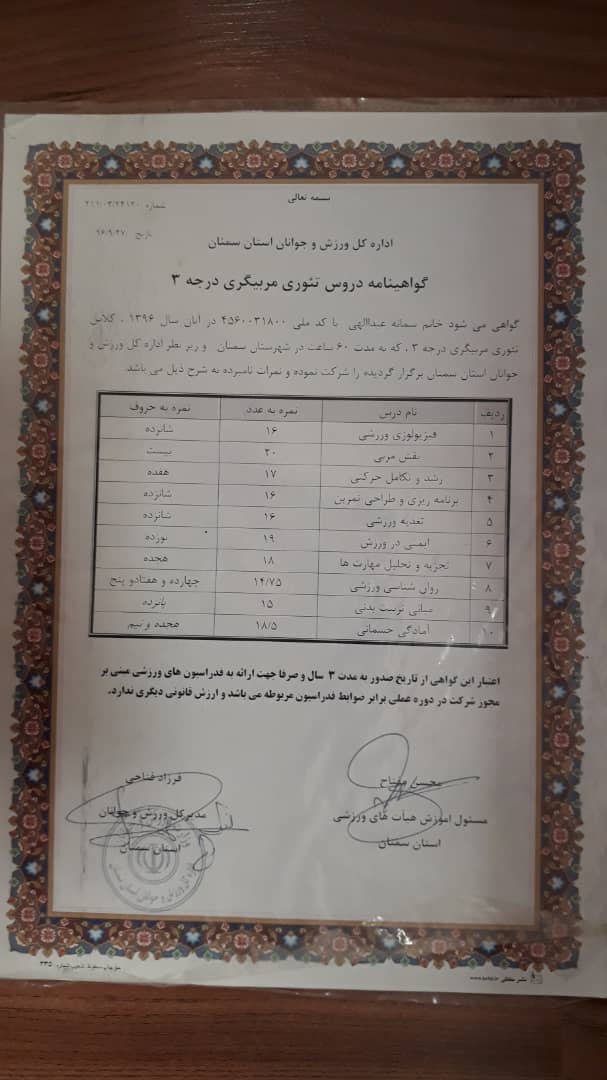 بسمه تعالی
شماره ۲۱۷/۰۳/۲۴۱۲۰
تاریخ ۹۶/۹/۲۷
اداره کل ورزش و جوانان استان سمنان
گواهینامه دروس تئوری مربیگری درجه ۳
گواهی می شود خانم سمانه عبداالهی با کد ملی ۴۵۶۰۰۳۱۸۰۰ در آبان سال ۱۳۹۶ ، کلاس
تئوری مربیگری درجه ۳ ، که به مدت ۶۰ ساعت در شهرستان سمنان و زیر نظر اداره کل ورزش و
جوانان استان سمنان برگزار گردیده را شرکت نموده و نمرات نامبرده به شرح ذیل می باشد.
ردیف نام درس نمره به عدد نمره به حروف
۱ فیزیولوژی ورزشی ۱۶ شانزده
۲ نقش مربی ۲۰ بیست
۳ رشد و تکامل حرکتی ۱۷ هفده
۴ برنامه ریزی و طراحی تمرین ۱۶ شانزده
۵ تغذیه ورزشی ۱۶ شانزده
۶ ایمنی در ورزش ۱۹ نوزده
۷ تجزیه و تحلیل مهارت ها ۱۸ هجده
۸ روان شناسی ورزشی ۱۴/۷۵ چهارده و هفتادو پنج
۹ مبانی تربیت بدنی ۱۵ پانزده
۱۰ آمادگی جسمانی ۱۸/۵ هجده و نیم
اعتبار این گواهی از تاریخ صدور به مدت ۳ سال و صرفا جهت ارائه به فدراسیون های ورزشی مبنی بر
مجوز شرکت در دوره عملی برابر ضوابط فدراسیون مربوطه می باشد و ارزش قانونی دیگری ندارد.
محسن مفتاح
مسئول آموزش هیأت های ورزشی
استان سمنان
فرزاد فتاحی
مدیرکل ورزش و جوانان
استان سمنان